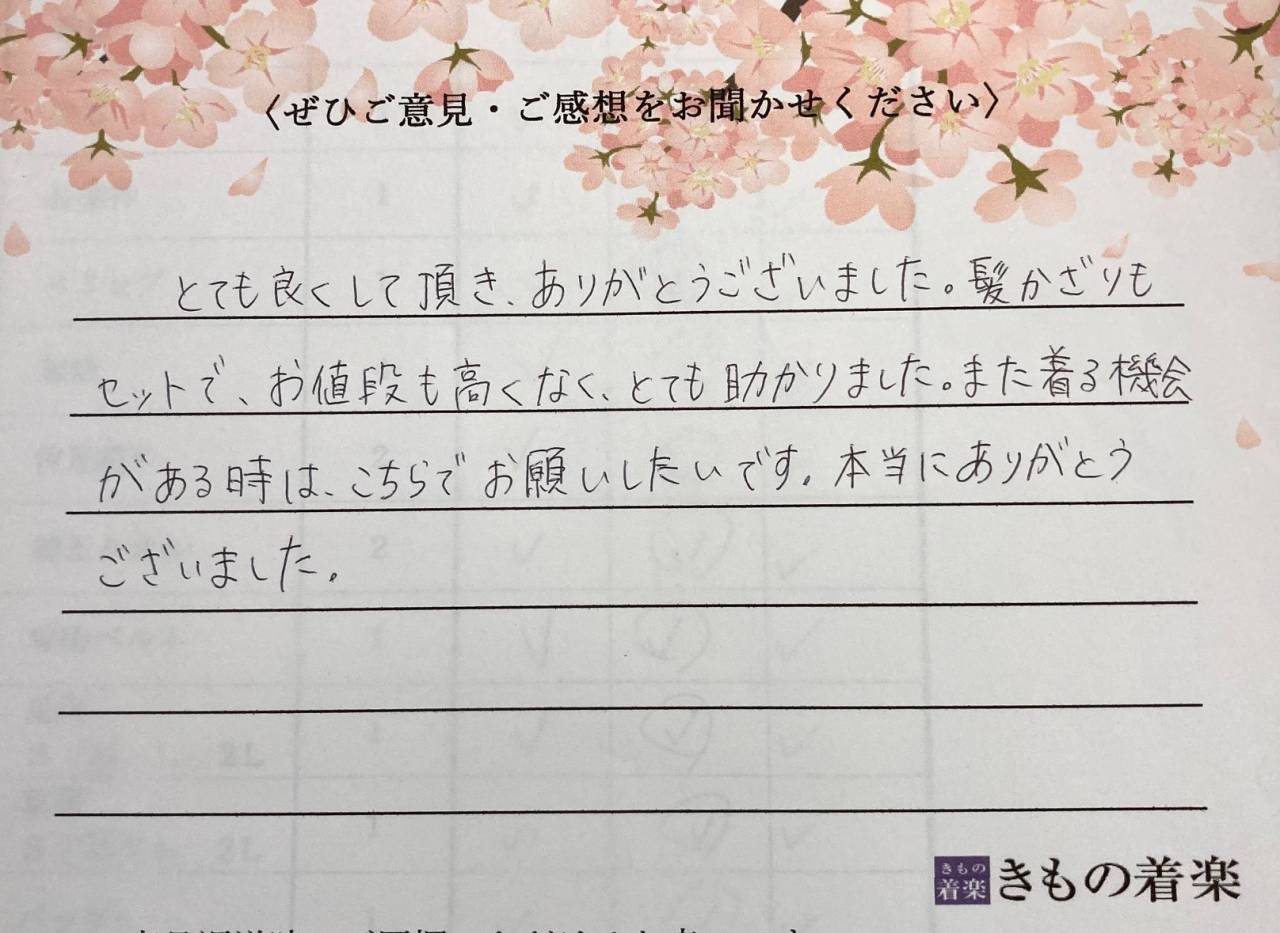 〈ぜひご意見・ご感想をお聞かせください〉
とても良くして頂き、ありがとうございました。髪かざりも
セットで、お値段も高くなく、とても助かりました。また着る機会
がある時は、こちらでお願いしたいです。本当にありがとう
ございました。
2
2
1
1
2L
1
2L
きもの
着楽
きもの着楽